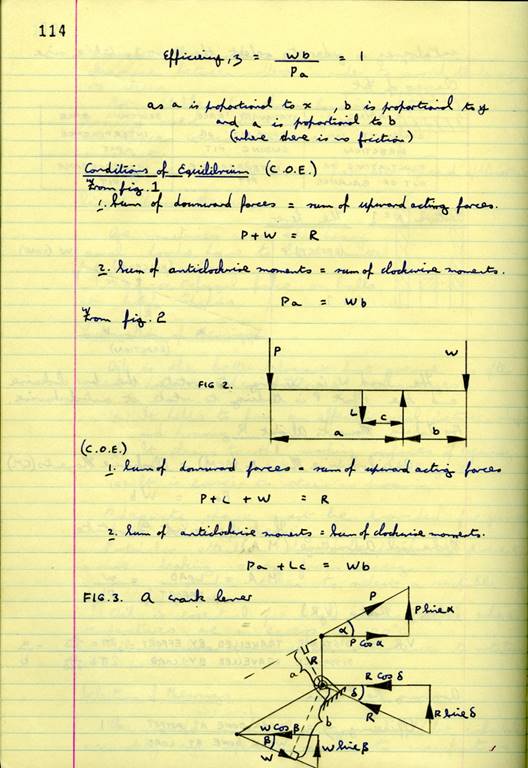 114
Efficiency, η = Wb / Pa = 1
as a is proportional to x , b is proportional to y
and a is proportional to b
(where there is no friction)
Conditions of Equilibrium (C.O.E.)
From fig. 1
1. Sum of downward forces = sum of upward acting forces.
P + W = R
2. Sum of anticlockwise moments = sum of clockwise moments.
Pa = Wb
From fig. 2
P W
FIG 2.
L c
a b
(C.O.E.)
1. Sum of downward forces = sum of upward acting forces
P + L + W = R
2. Sum of anticlockwise moments = Sum of clockwise moments.
Pa + Lc = Wb
FIG. 3. A crank lever
P
P sin α
α
P cos α
R
a
R cos δ
δ
R
R sin δ
b
W cos β
β
W
W sin β